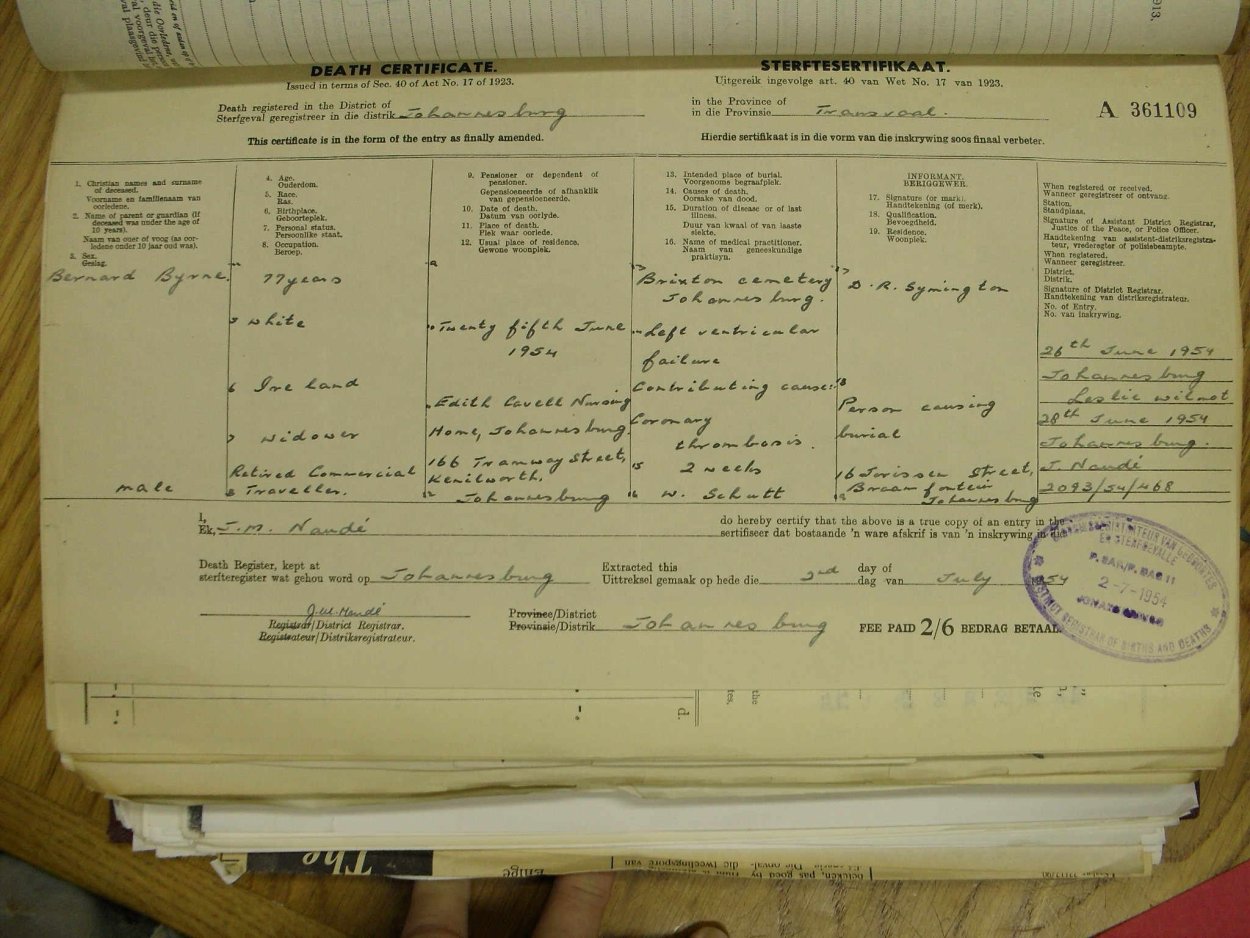 DEATH CERTIFICATE.
Issued in terms of Sec. 40 of Act No. 17 of 1923.
STERFTESERTIFIKAAT.
Uitgereik ingevolge art. 40 van Wet No. 17 van 1923.
Death registered in the District of
Sterfgeval geregistreer in die distrik Johannesburg
in the Province of
in die Provinsie Transvaal.
A 361109
This certificate is in the form of the entry as finally amended.
Hierdie sertifikaat is in die vorm van die inskrywing soos finaal verbeter.
1. Christian names and surname
of deceased.
Voorname en familienaam van
oorledene.
2. Name of parent or guardian (if
deceased was under the age of
10 years).
Naam van ouer of voog (as oor-
ledene onder 10 jaar oud was).
3. Sex.
Geslag.
Bernard Byrne.
male
4. Age.
Ouderdom.
5. Race.
Ras.
6. Birthplace.
Geboorteplek.
7. Personal status.
Persoonlike staat.
8. Occupation.
Beroep.
77 years
5 white
6 Ireland
7 widower
Retired Commercial
8 Traveller.
9. Pensioner or dependent of
pensioner.
Gepensioeneerde of afhanklik
van gepensioeneerde.
10. Date of death.
Datum van oorlyde.
11. Place of death.
Plek waar oorlede.
12. Usual place of residence.
Gewone woonplek.
Twenty fifth June
1954
Edith Cavell Nursing
Home, Johannesburg.
166 Tramway Street,
Kenilworth,
12 Johannesburg
13. Intended place of burial.
Voorgenome begraafplek.
14. Causes of death.
Oorsake van dood.
15. Duration of disease or of last
illness.
Duur van kwaal of van laaste
siekte.
16. Name of medical practitioner.
Naam van geneeskundige
praktisyn.
Brixton cemetery
Johannesburg.
Left ventricular
failure
Contributing cause:
Coronary
thrombosis.
15 2 weeks
16 W. Schutt
INFORMANT.
BERIGGEWER.
17. Signature (or mark).
Handtekening (of merk).
18. Qualification.
Bevoegdheid.
19. Residence.
Woonplek.
17 D. R. Symington
18
Person causing
burial
16 Jorissen Street,
Braamfontein
19 Johannesburg
When registered or received.
Wanneer geregistreer of ontvang.
Station.
Standplaas.
Signature of Assistant District Registrar,
Justice of the Peace, or Police Officer.
Handtekening van assistent-distriksregistra-
teur, vrederegter of polisiebeampte.
When registered.
Wanneer geregistreer.
District.
Distrik.
Signature of District Registrar.
Handtekening van distriksregistrateur.
No. of Entry.
No. van inskrywing.
26th June 1954
Johannesburg
Leslie Wilmot
28th June 1954
Johannesburg.
J. Naudé
2093/54/468
I,
Ek, J. M. Naudé
do hereby certify that the above is a true copy of an entry in the
sertifiseer dat bostaande 'n ware afskrif is van 'n inskrywing in die
Death Register, kept at
sterfteregister wat gehou word op Johannesburg
Extracted this
Uittreksel gemaak op hede die 2nd
day of
dag van July 54
J. M. Naudé
Registrar/District Registrar.
Registrateur/Distriksregistrateur.
Province/District
Provinsie/Distrik Johannesburg
FEE PAID 2/6 BEDRAG BETAAL
EN STERFGEVALLE
P. SAK/P. BAG 11
2-7-1954
DISTRICT REGISTRAR OF BIRTHS AND DEATHS
The
Enige